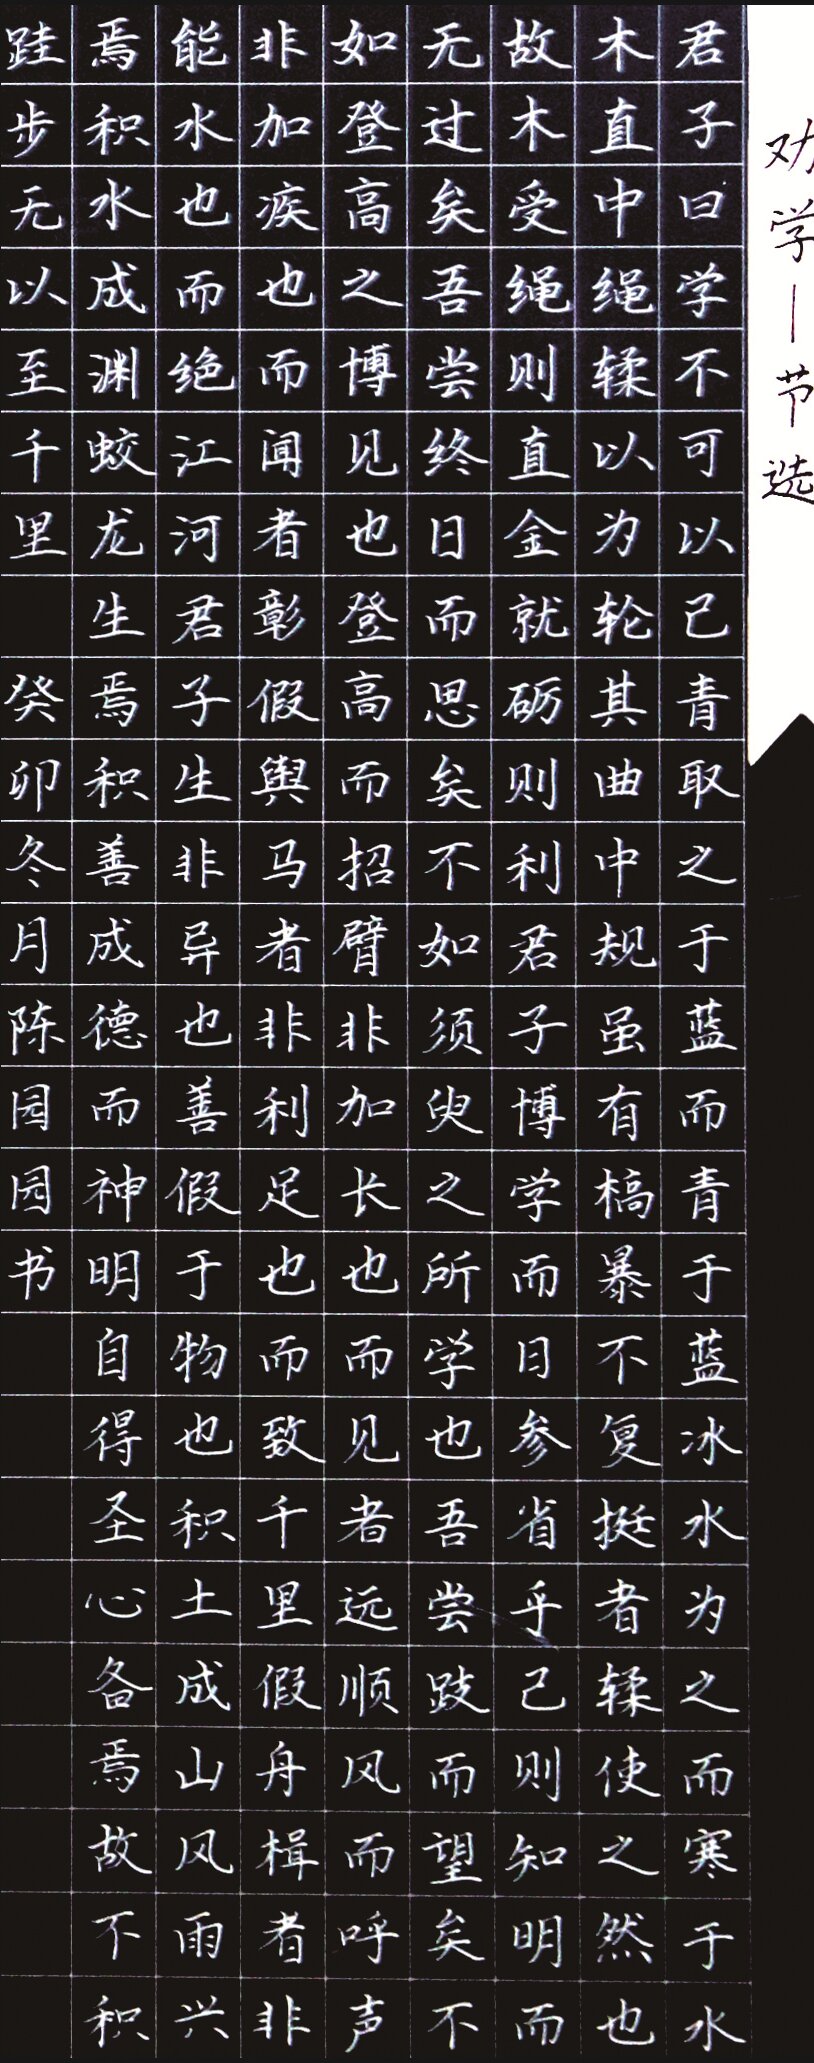 劝学｜节选
君子曰学不可以已青取之于蓝而青于蓝冰水为之而寒于水
木直中绳輮以为轮其曲中规虽有槁暴不复挺者輮使之然也
故木受绳则直金就砺则利君子博学而日参省乎己则知明而
无过矣吾尝终日而思矣不如须臾之所学也吾尝跂而望矣不
如登高之博见也登高而招臂非加长也而见者远顺风而呼声
非加疾也而闻者彰假舆马者非利足也而致千里假舟楫者非
能水也而绝江河君子生非异也善假于物也积土成山风雨兴
焉积水成渊蛟龙生焉积善成德而神明自得圣心备焉故不积
跬步无以至千里 癸卯冬月陈园园书